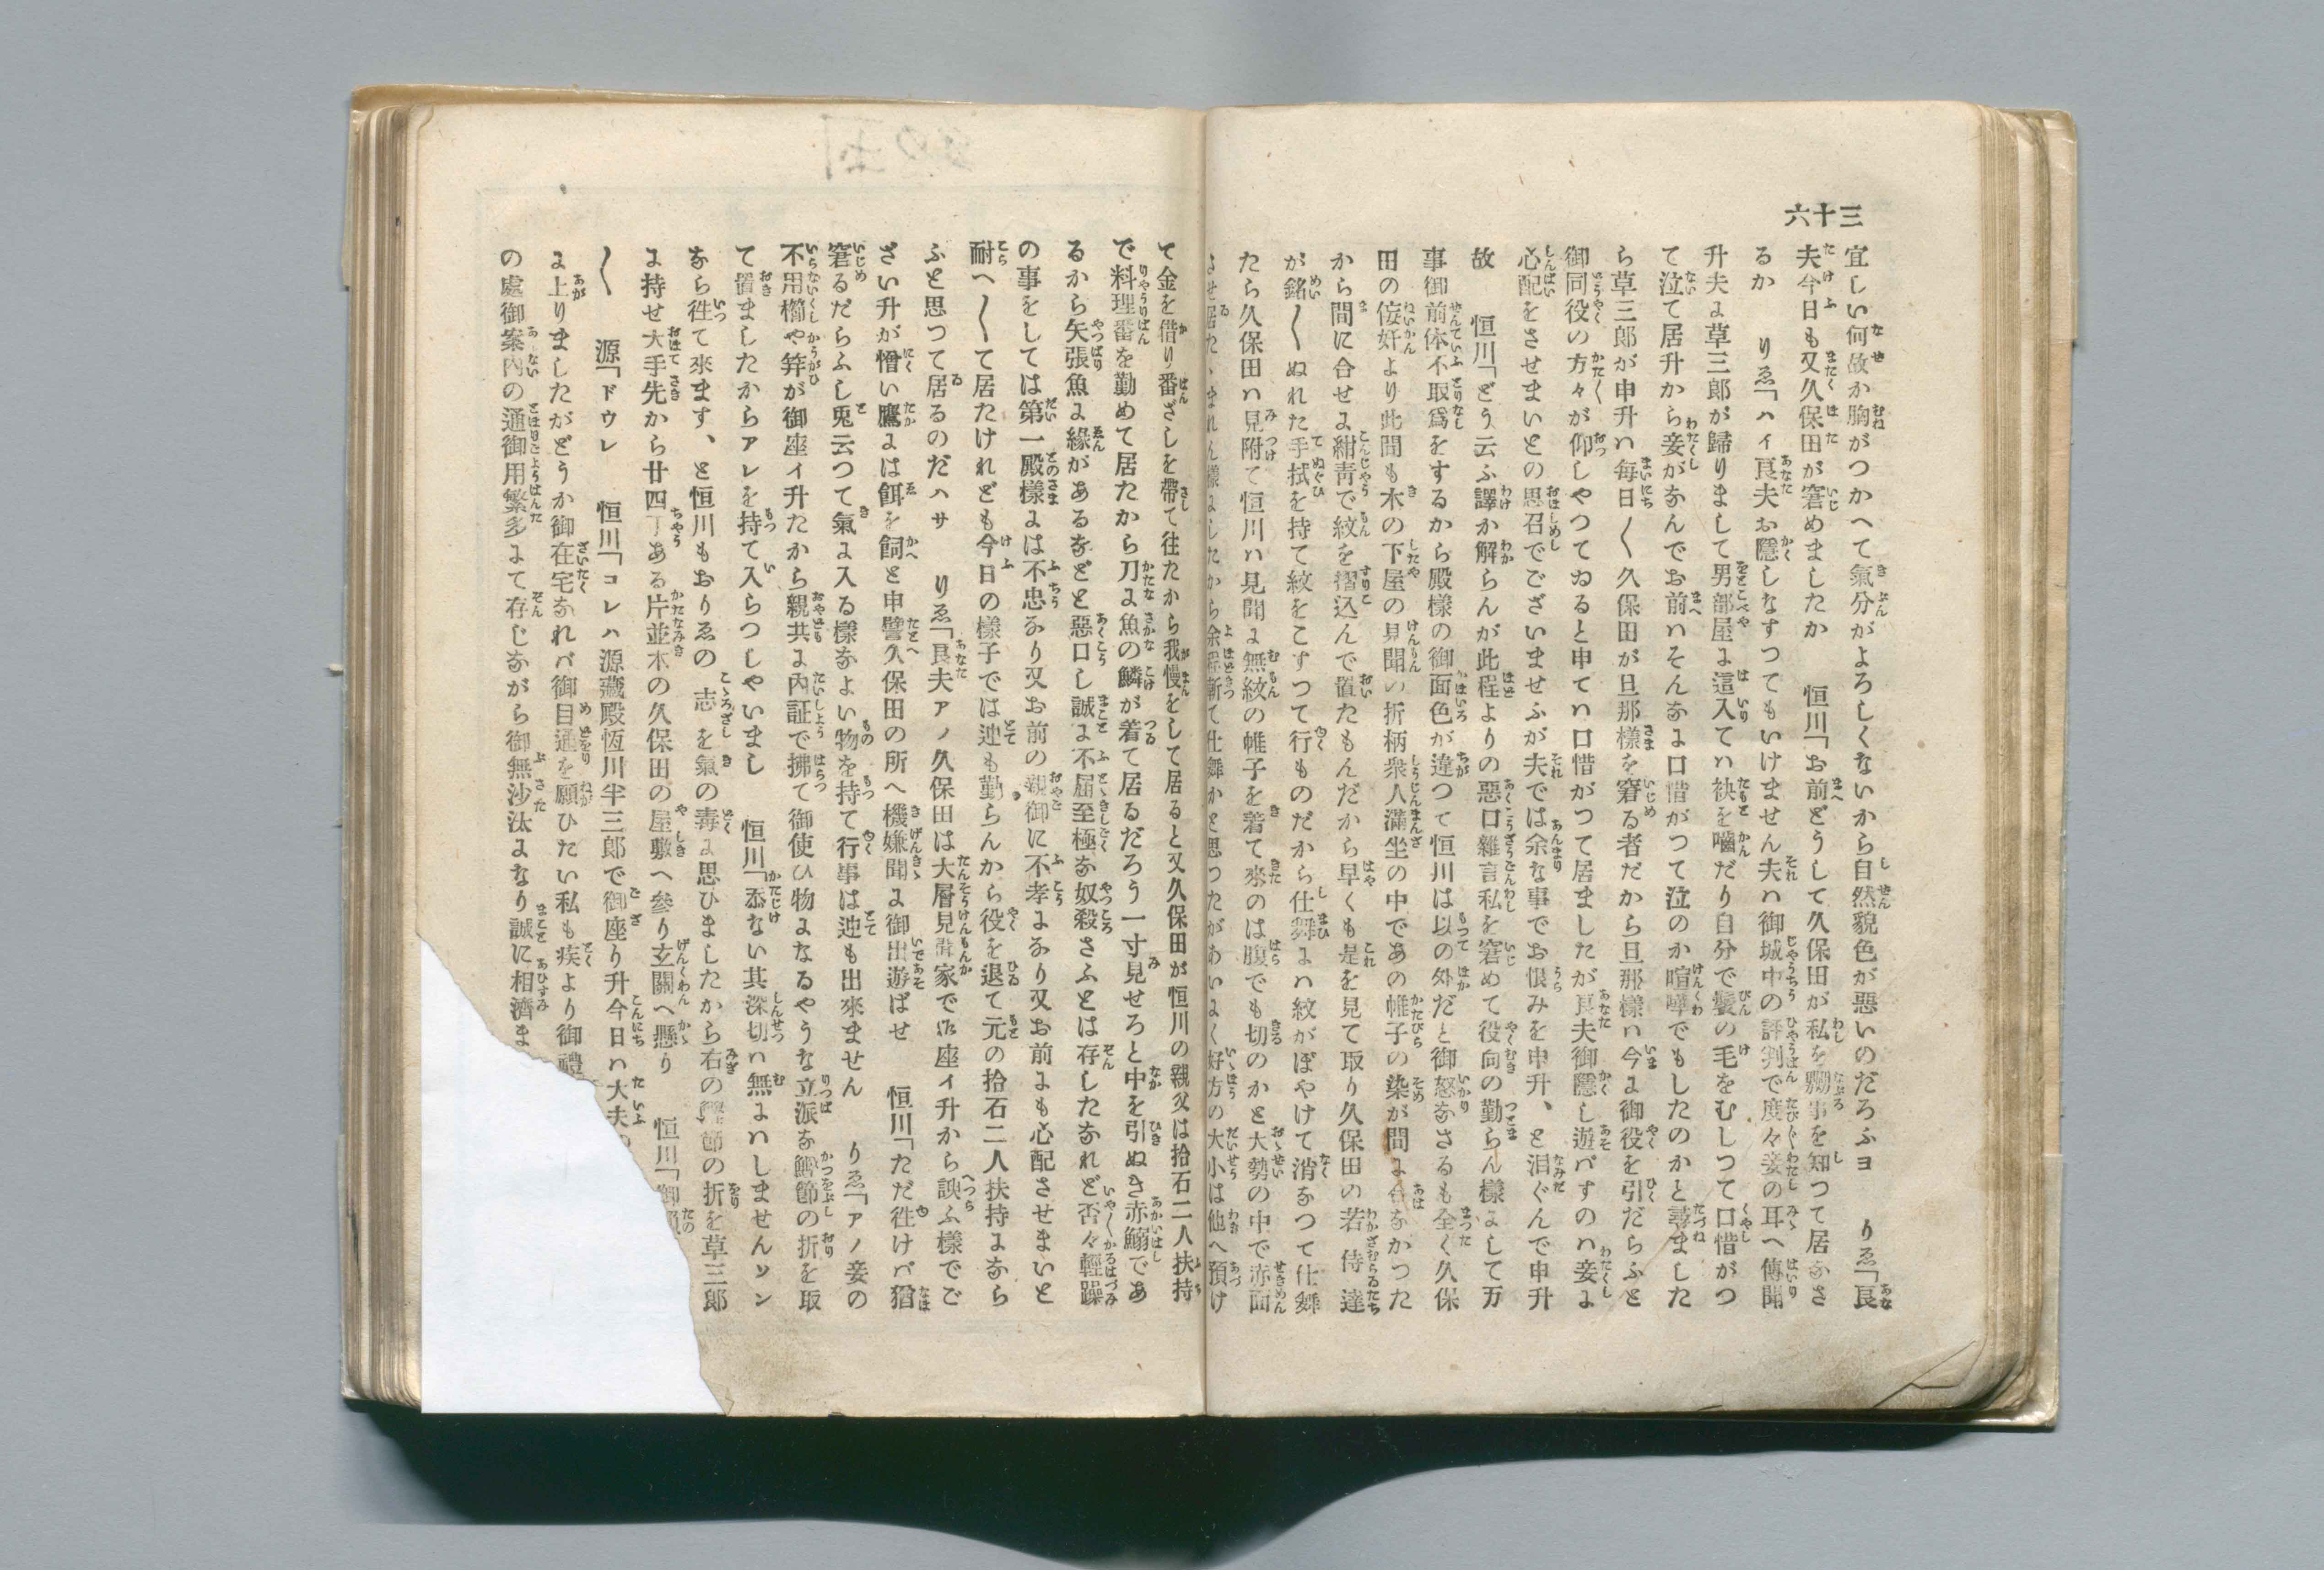 三十六
宜しい何故か胸がつかへて氣分がよろしくないから自然貌色が惡いのだろふヨ　りゑ「良
夫今日も又久保田が窘めましたか　恒川「お前どうして久保田が私を嬲事を知つて居なさ
るか　りゑ「ハイ良夫お隱しなすつてもいけません夫ハ御城中の評判で度々妾の耳へ傳聞
升夫よ草三郎が歸りまして男部屋よ這入てハ袂を嚙だり自分で鬢の毛をむしつて口惜がつ
て泣て居升から妾がなんでお前ハそんなよ口惜がつて泣のか喧嘩でもしたのかと尋ました
ら草三郎が申升ハ毎日〱久保田が旦那樣を窘る者だから旦那樣ハ今よ御役を引だらふと
御同役の方々が仰しやつてゐると申てハ口惜がつて居ましたが良夫御隱し遊パすのハ妾よ
心配をさせまいとの思召でございませふが夫では余な事でお恨みを申升、と泪ぐんで申升
故　恒川「どう云ふ譯か解らんが此程よりの惡口雜言私を窘めて役向の勤らん樣よして万
事御前体不取爲をするから殿樣の御面色が違つて恒川は以の外だと御怒なさるも全く久保
田の侫奸より此間も木の下屋の見聞の折柄衆人滿坐の中であの帷子の染が間よ合なかつた
から間に合せよ紺靑で紋を摺込んで置たもんだから早くも是を見て取り久保田の若侍達
が銘〱ぬれた手拭を持て紋をこすつて行ものだから仕舞よハ紋がぼやけて消なつて仕舞
たら久保田ハ見附て恒川ハ見聞よ無紋の帷子を着て來のは腹でも切のかと大勢の中で赤面
て仕舞かと思つたがあいよく好方の大小は他へ預け
て金を借り番ざしを帶て往たから我慢をして居ると又久保田が恒川の親父は拾石二人扶持
で料理番を勤めて居たから刀よ魚の鱗が着て居るだろう一寸見せろと中を引ぬき赤鰯であ
るから矢張魚よ緣があるなどと惡口し誠よ不屆至極な奴殺さふとは存したなれど否々輕躁
の事をしては第一殿樣よは不忠なり又お前の親御に不孝よなり又お前よも心配させまいと
耐へ〱て居たけれども今日の樣子では迚も勤らんから役を退て元の拾石二人扶持よなら
ふと思つて居るのだハサ　りゑ「良夫アノ久保田は大層見聞家で御座イ升から諛ふ樣でご
ざい升が憎い鷹よは餌を飼へと申譬へ久保田の所へ機嫌聞よ御出遊ばせ　恒川「ただ徃けパ猶
窘るだらふし兎云つて氣よ入る樣なよい物を持て行事は迚も出來ません　りゑ「アノ妾の
不用櫛や笄が御座イ升たから親共よ内証で拂て御使ひ物よなるやうな立派な鰹節の折を取
て置ましたからアレを持て入らつしやいまし　恒川「忝ない其深切ハ無よハしませんソン
なら徃て來ます、と恒川もおりゑの志を氣の毒よ思ひましたから右の鰹節の折を草三郎
よ持せ大手先から廿四丁ある片並木の久保田の屋敷へ參り玄關へ懸り　恒川「御賴
〱　源「ドウレ　恒川「コレハ源藏殿恆川半三郎で御座り升今日ハ大夫
よ上りましたがどうか御在宅なれパ御目通を願ひたい私も疾より御禮
の處御案内の通御用繁多よて存じながら御無沙汰よなり誠に相濟ま